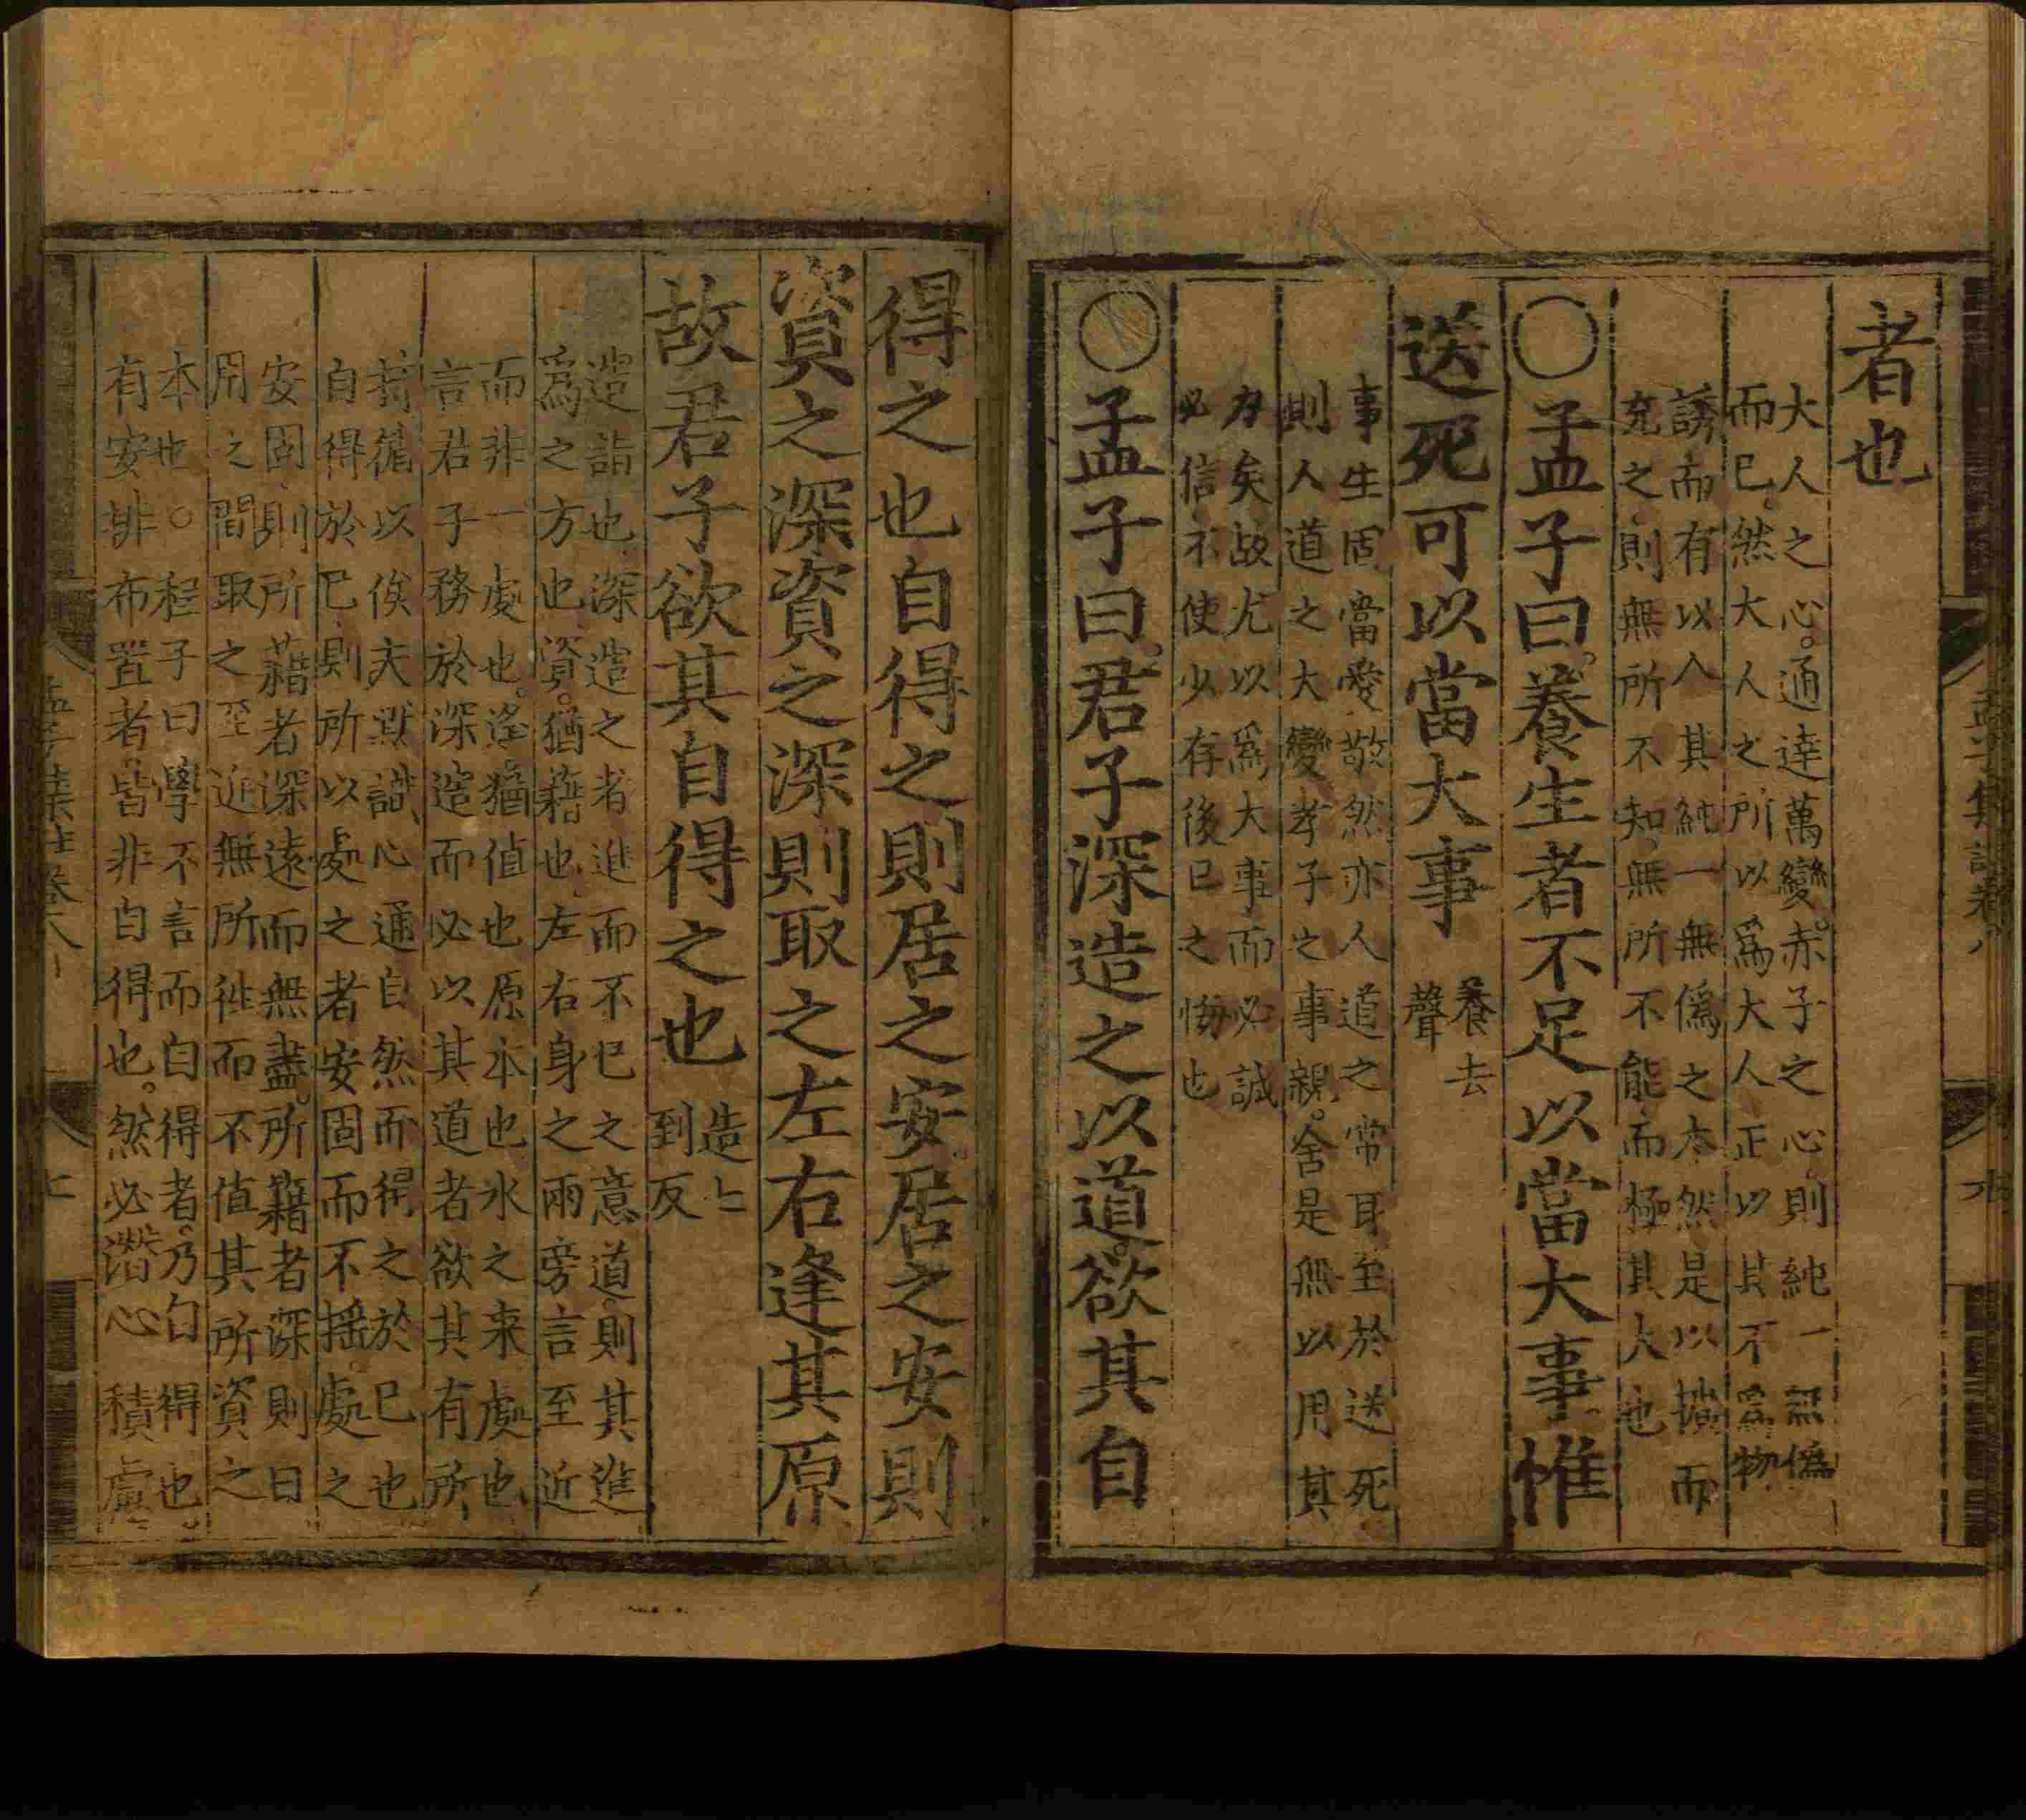 者也
大人之心。通達萬變。赤子之心。則純一無僞
而已。然大人之所以爲大人正以其不爲物
誘而有以入其純一無僞之本然是以擴而
充之則無所不知無所不能而極其大也
○孟子曰。養生者不足以當大事惟
送死可以當大事
養去
聲
事生固當愛敬然亦人道之常耳至於送死
則人道之大變孝子之事親。舍是無以用其
力矣故尤以爲大事而必誠
必信不使少有後已之悔也
○孟子曰。君子深造之以道。欲其自
孟子集註卷八
九
得之也自得之則居之安。居之安則
資之深資之深則取之左右逢其原
故君子欲其自得之也
造七
到反
造詣也深造之者進而不已之意道則其進
爲之方也資。猶藉也左右身之兩旁言至近
而非一處也。逢。猶值也原本也水之来處也
言君子務於深造而必以其道者欲其有所
持循以俟夫默識心通自然而得之於已也
自得於已則所以處之者安固而不揺。處之
安固則所藉者深遠而無盡。所藉者深則日
用之間取之至近無所徃而不值其所資之
本也○程子曰學不言而自得者。乃自得也。
有安排布置者。皆非自得也。然必潜心積慮
孟子集註卷八